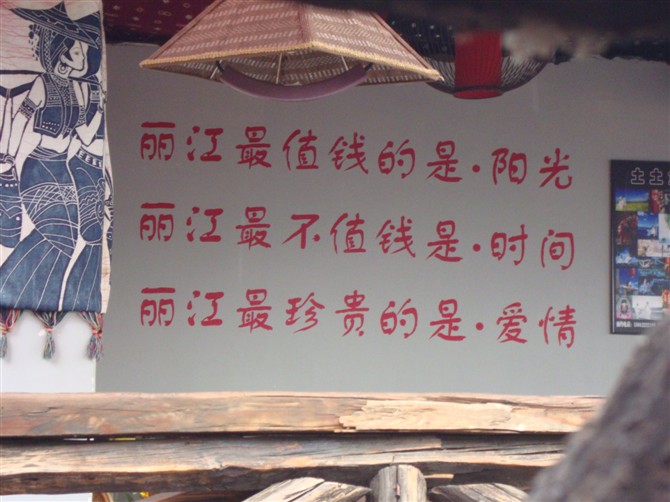 丽江最值钱的是·阳光
丽江最不值钱是·时间
丽江最珍贵的是·爱情
土土